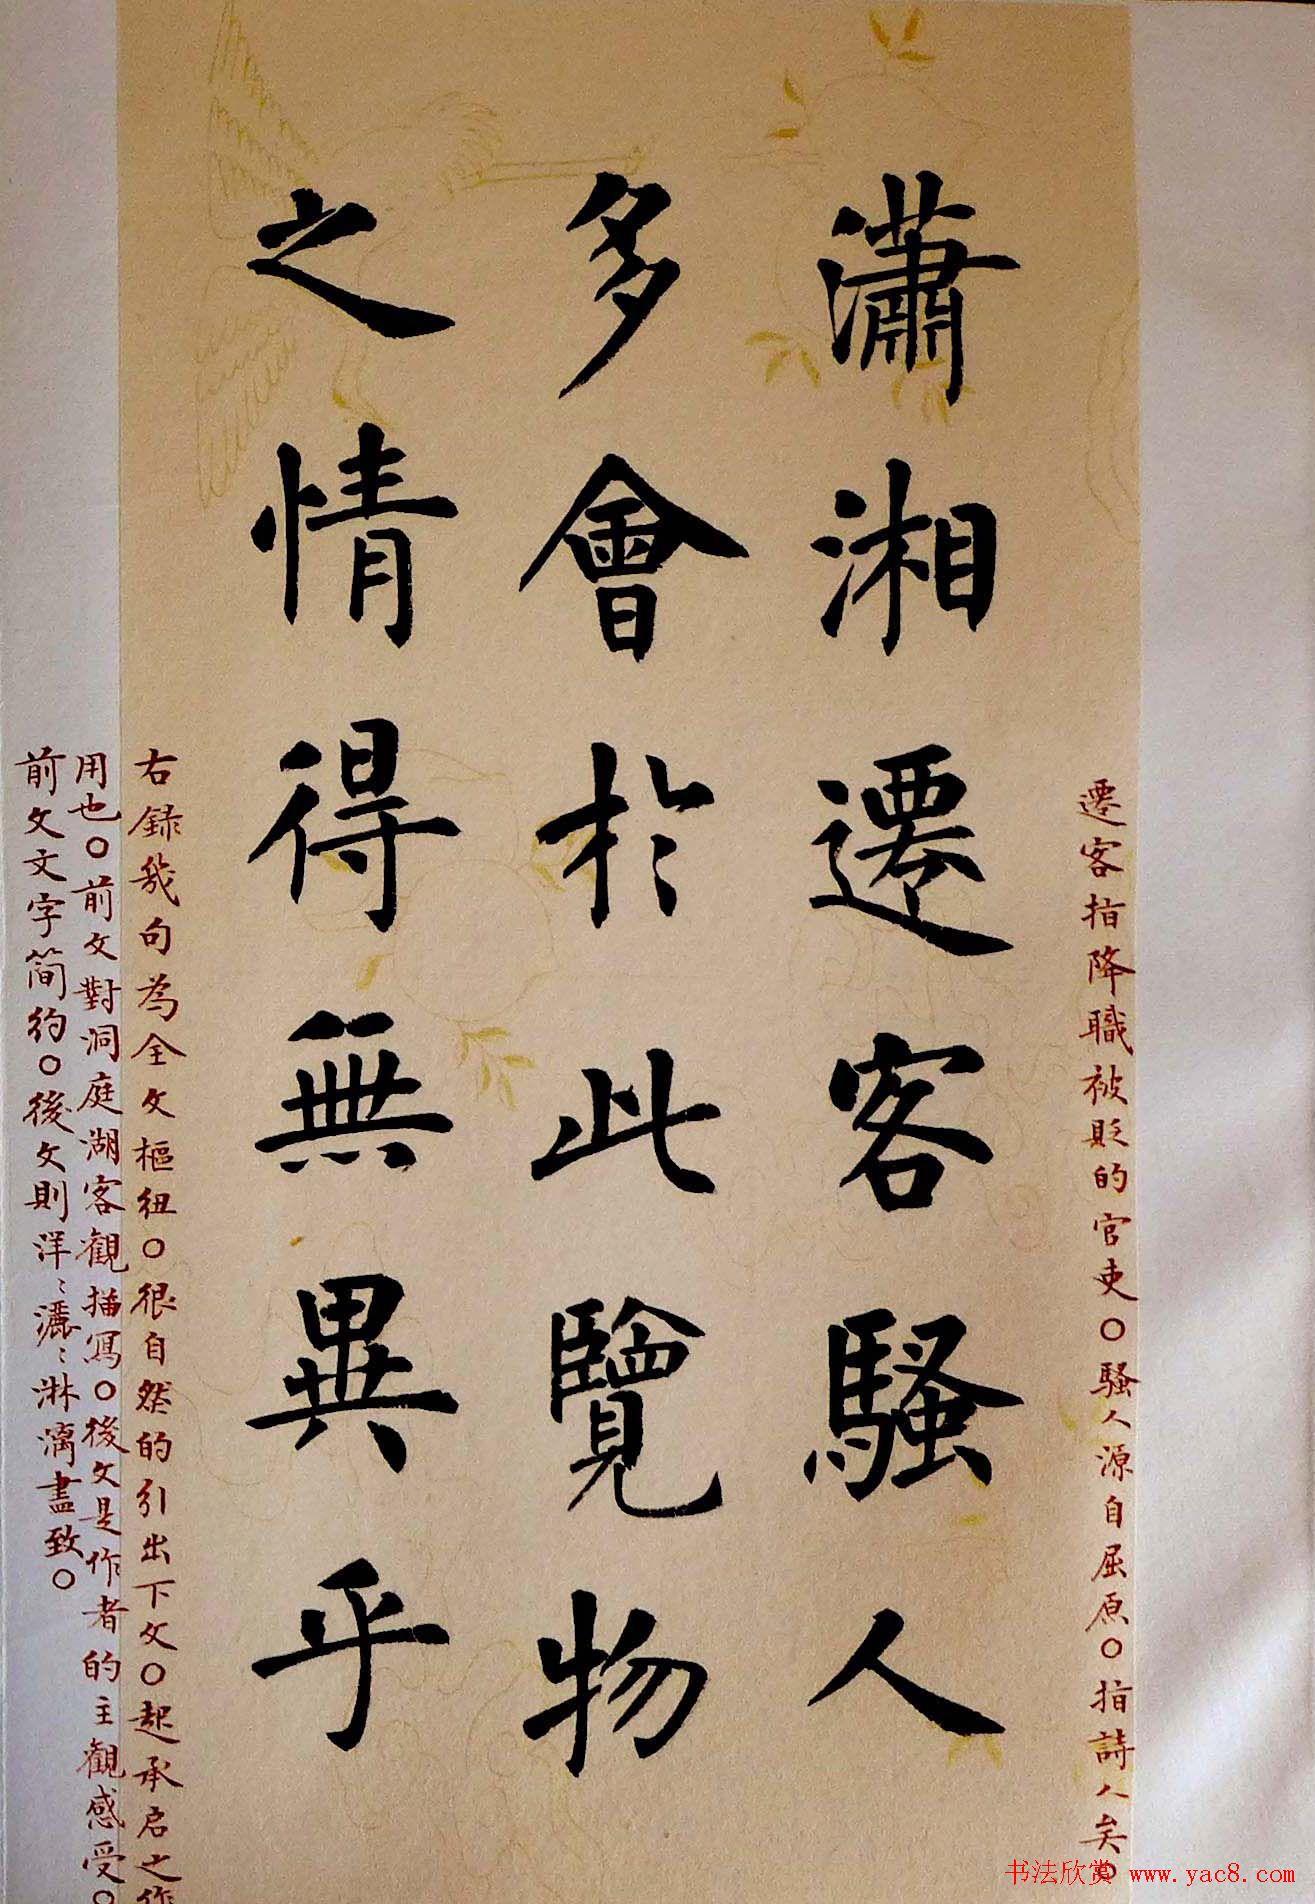 遷客指降職被貶的官吏〇騷人源自屈原〇指詩人矣〇
瀟湘遷客騷人
多會於此覽物
之情得無異乎
右録幾句為全文樞紐〇很自然的引出下文〇起承启之作
用也〇前文對洞庭湖客觀描寫〇後文是作者的主觀感受〇
前文文字简约〇後文則洋〻灑〻淋漓盡致〇
书法欣赏 www.yac8.com